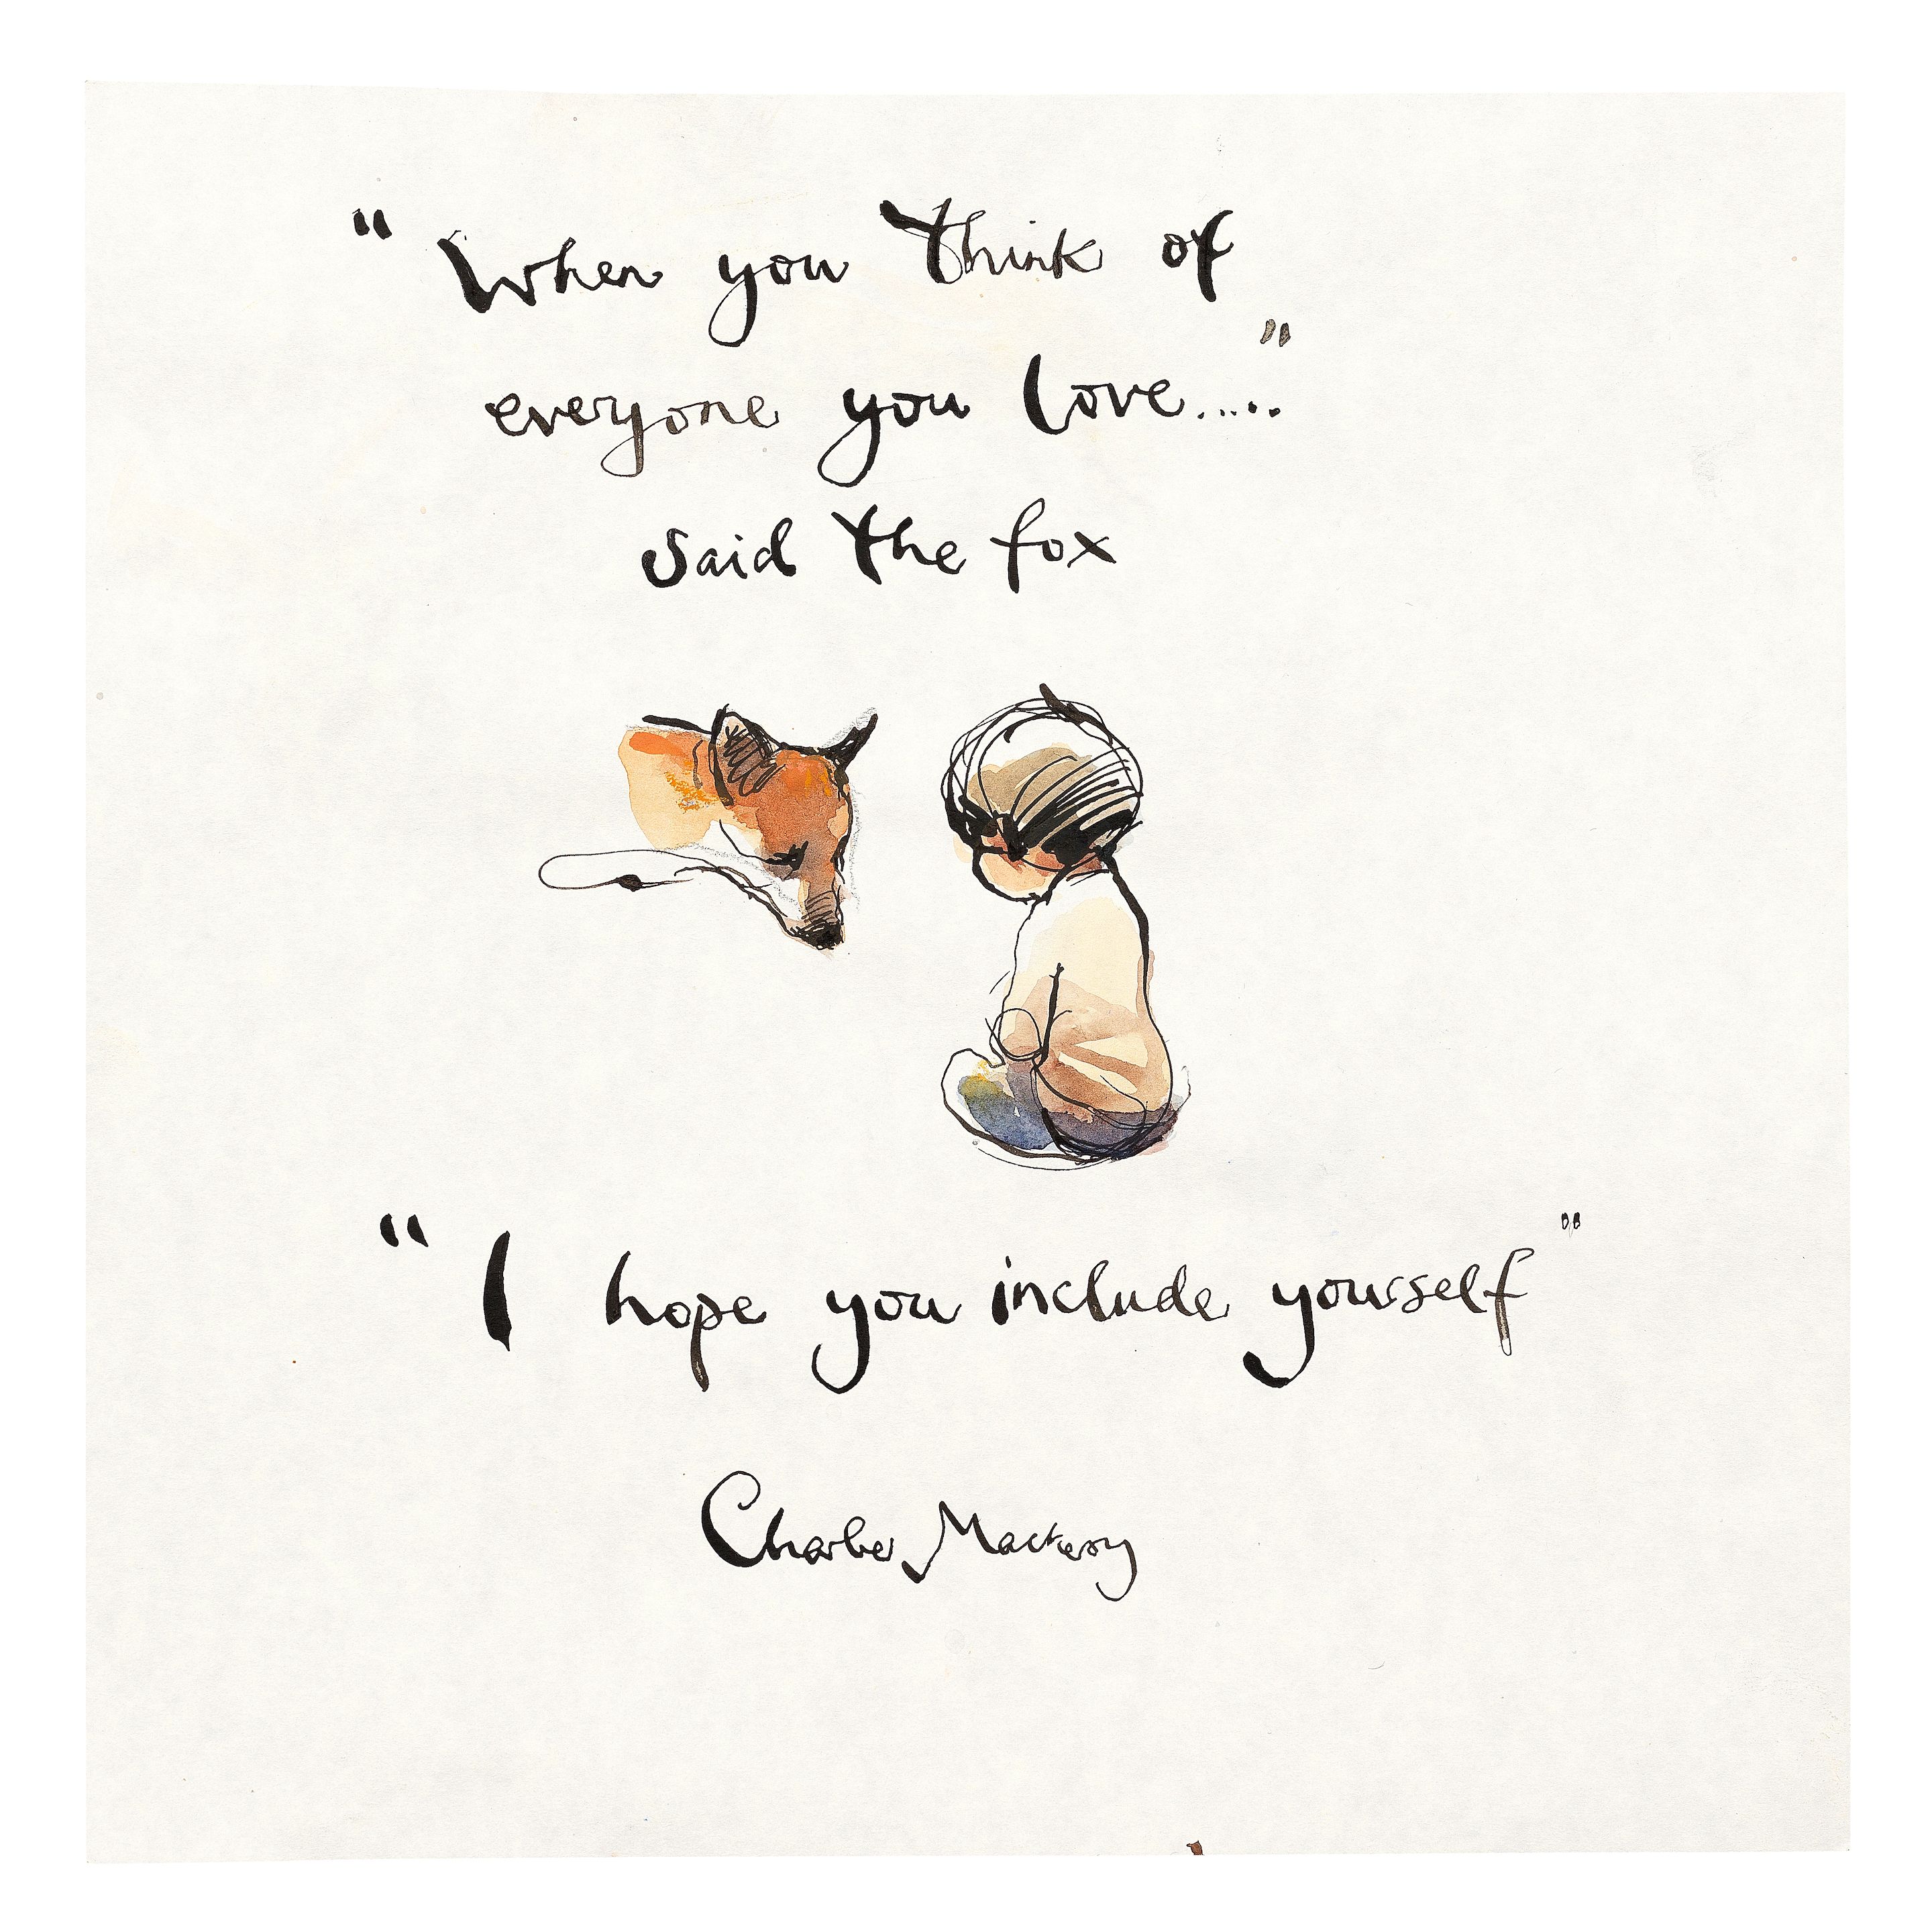 "When you think of
everyone you love....."
said the fox
"I hope you include yourself"
Charlie Mackesy